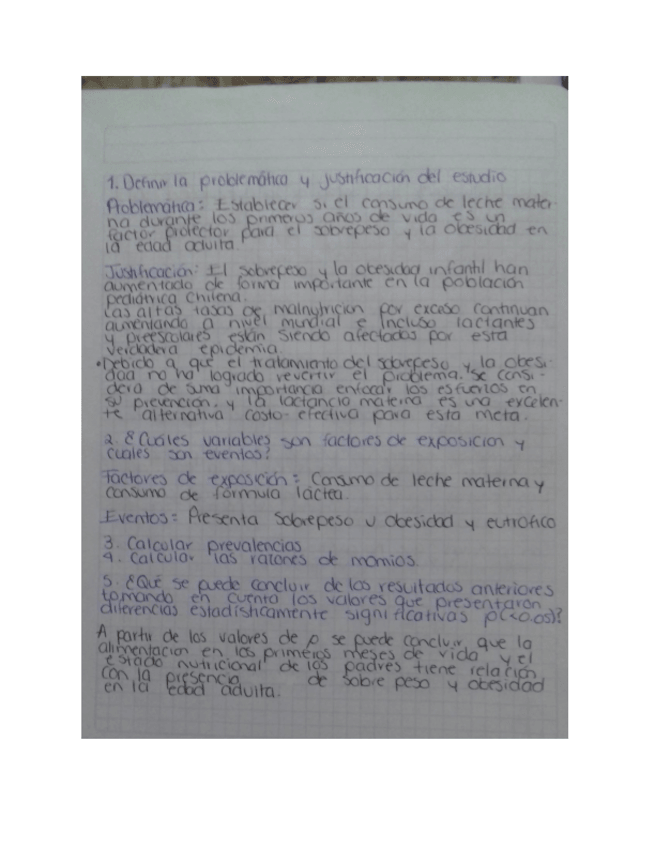 1. Definir la problemática y justificación del estudio
Problemática: Establecer si el consumo de leche mater-
na durante los primeros años de vida es un
factor protector para el sobrepeso y la obesidad en
la edad adulta.
Justificación: El sobrepeso y la obesidad infantil han
aumentado de forma importante en la población
pediátrica chilena.
Las altas tasas de malnutricion por exceso continuan
aumentando a nivel mundial e incluso lactantes
y preescolares están siendo afectados por esta
verdadera epidemia.
•Debido a que el tratamiento del sobrepeso y la obesi-
dad no ha logrado revertir el problema. Se consi-
dera de suma importancia enfocar los esfuerzos en
su prevención, y la lactancia materna es una excelen-
te alternativa costo-efectiva para esta meta.
2. ¿Cuáles variables son factores de exposición y
cuales son eventos?
Factores de exposición: Consumo de leche materna y
consumo de fórmula láctea.
Eventos: Presenta sobrepeso u obesidad y eutrófico
3. Calcular prevalencias
4. Calcular las razones de momios.
5. ¿Qué se puede concluir de los resultados anteriores
tomando en cuenta los valores que presentaron
diferencias estadísticamente significativas p(<0.05)?
A partir de los valores de p se puede concluir que la
alimentación en los primeros meses de vida y el
estado nutricional de los padres tiene relación
con la presencia de sobre peso y obesidad
en la edad adulta.